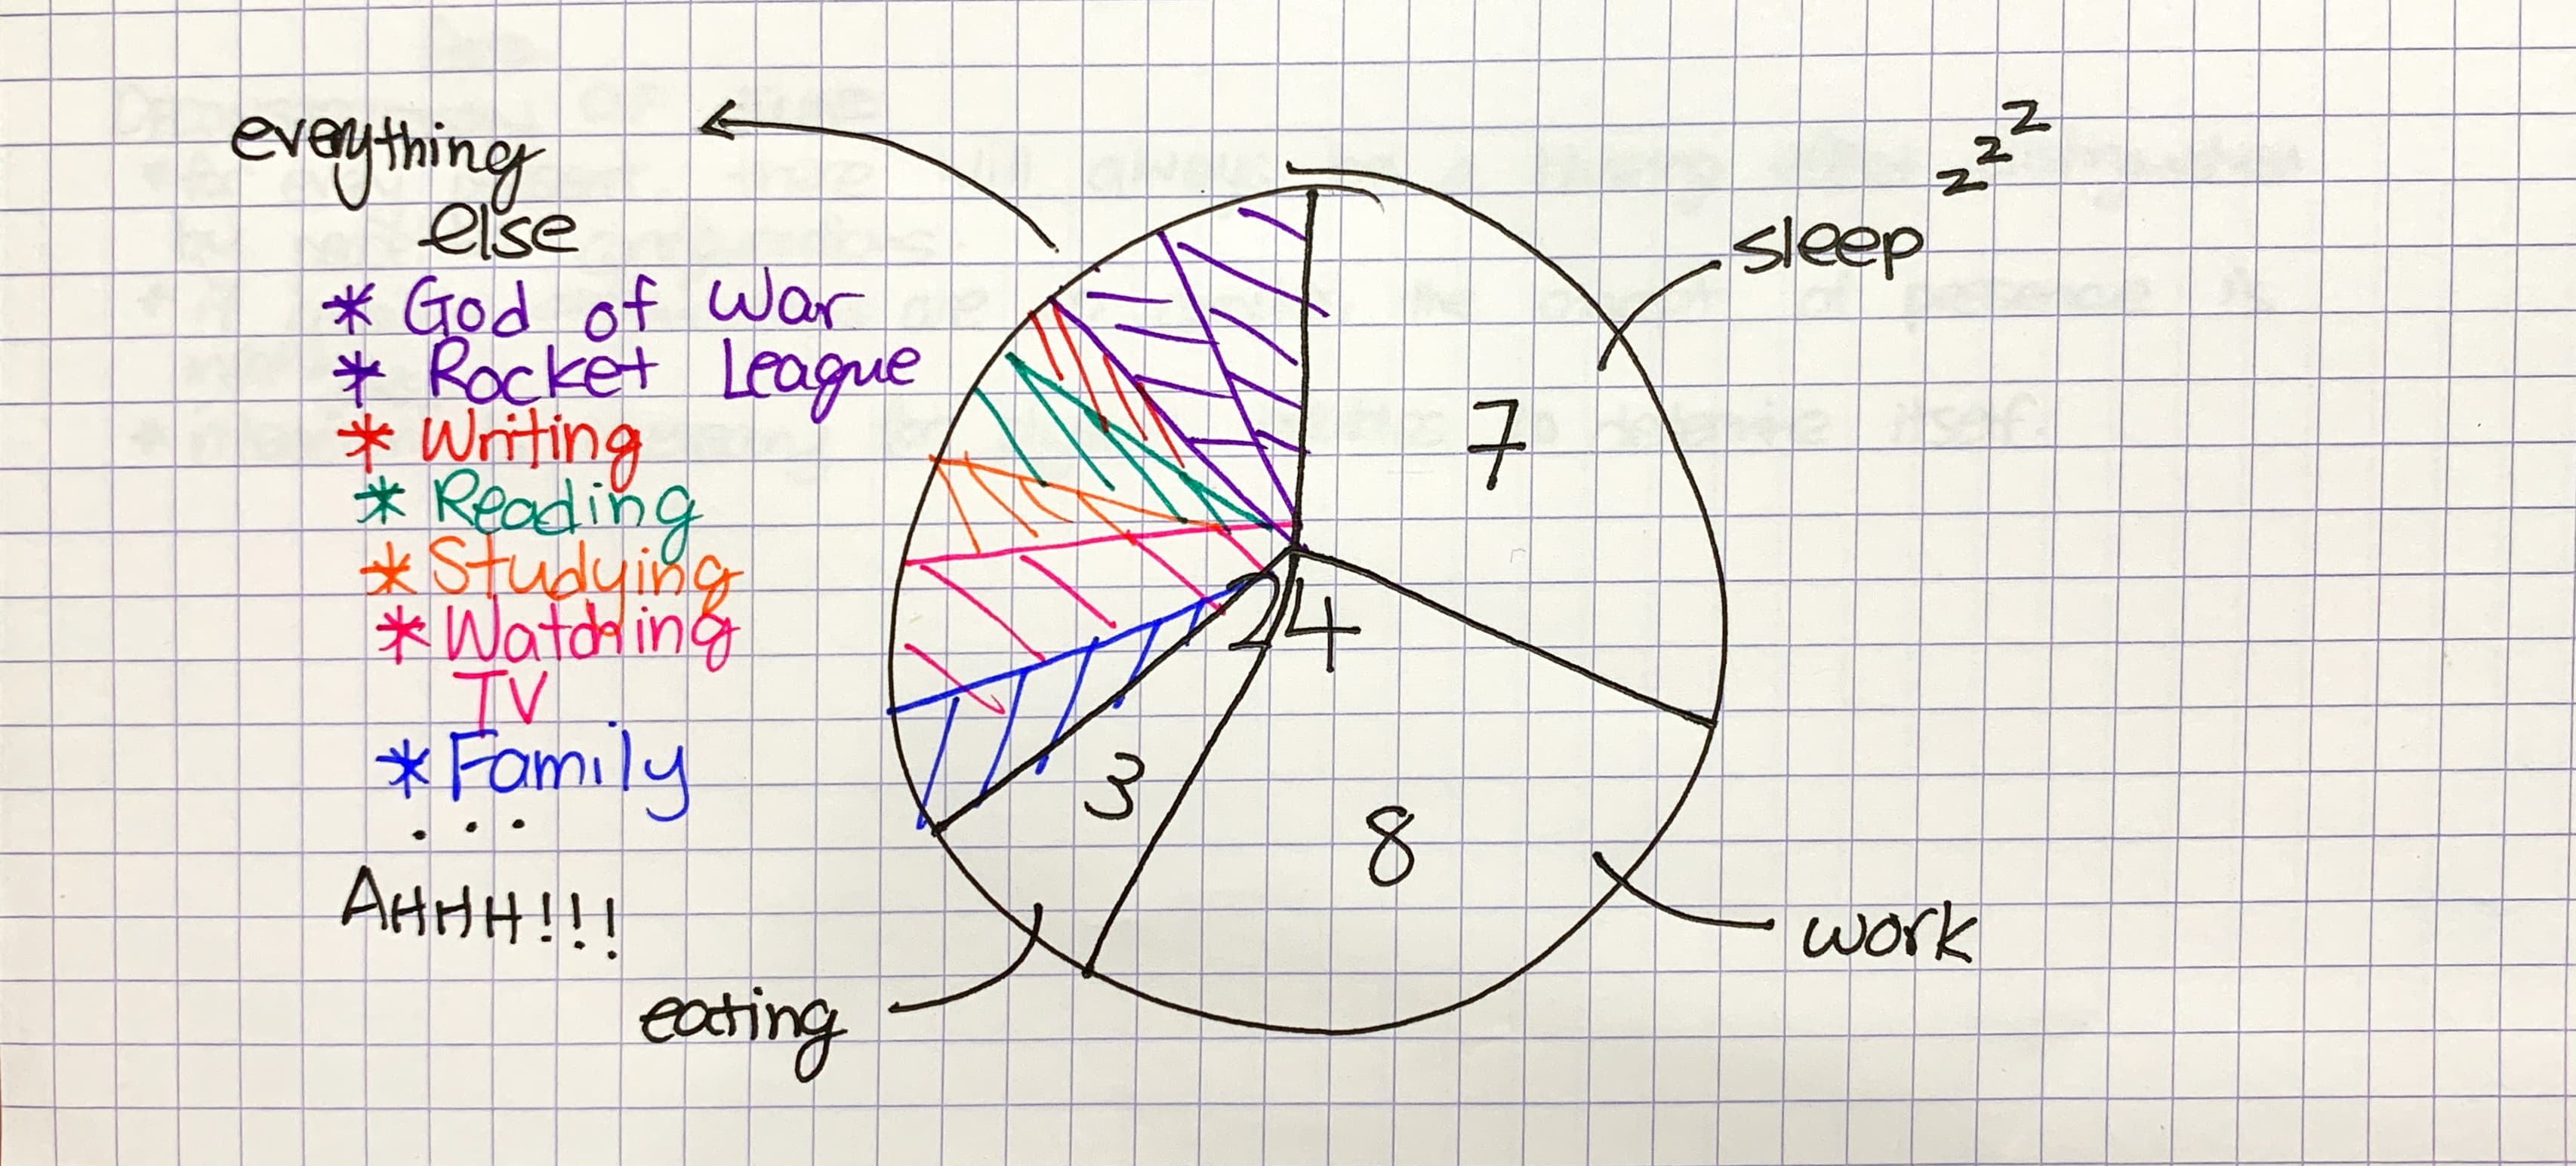 everything
else
* God of War
* Rocket League
* Writing
* Reading
* Studying
* Watching
TV
* Family
...
AHHH!!!
z z z
sleep
7
24
3
8
work
eating